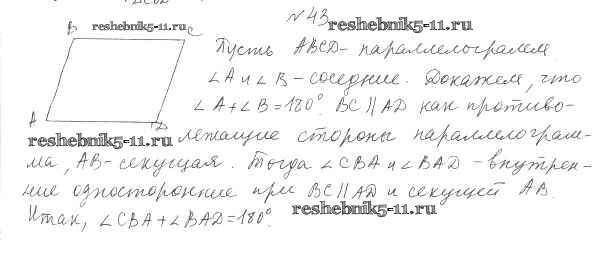 N 43 reshebnik5-11.ru
B reshebnik5-11.ru C
Пусть ABCD - параллелограмм
∠A и ∠B - соседние. Докажем, что
A ∠A + ∠B = 180°. BC ∥ AD как противо-
D
reshebnik5-11.ru лежащие стороны параллелограм-
ма, AB - секущая. Тогда ∠CBA и ∠BAD - внутрен-
ние односторонние при BC ∥ AD и секущей AB.
Итак, ∠CBA + ∠BAD = 180°.
reshebnik5-11.ru